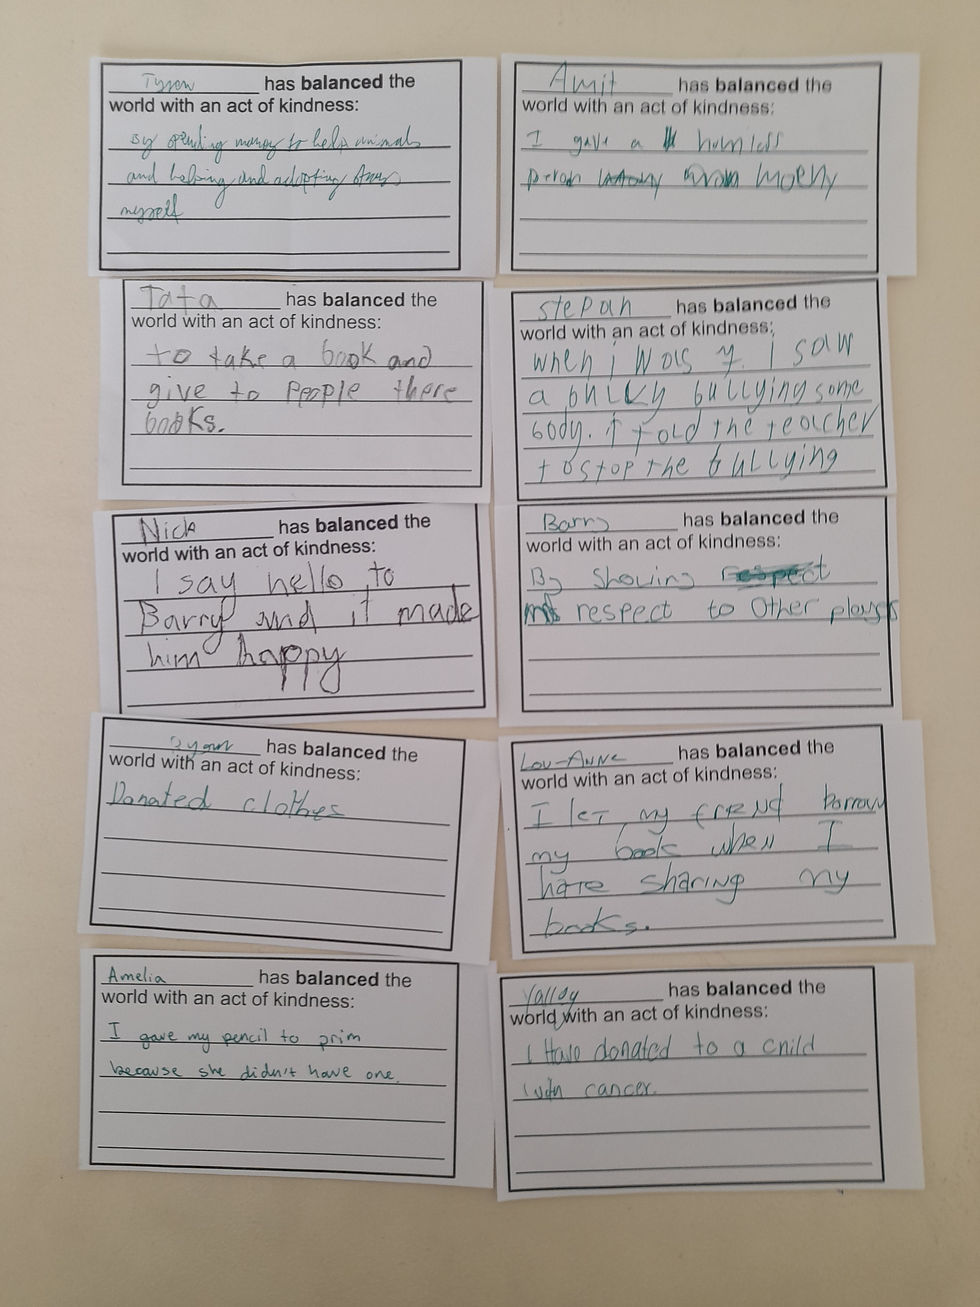 Tyson has balanced the
world with an act of kindness:
By spending money to help animals
and helping and adopting
myself
Amit has balanced the
world with an act of kindness:
I gave a homless
person moeny
Tata has balanced the
world with an act of kindness:
to take a book and
give to people there
books.
Stepan has balanced the
world with an act of kindness:
when i was 7. I saw
a bully bullying some
body. I told the teacher
to stop the bullying
Nick has balanced the
world with an act of kindness:
I say hello to
Barry and it made
him happy
Barry has balanced the
world with an act of kindness:
By showing respect
respect to Other players
has balanced the
world with an act of kindness:
Donated clothes
Lou-Anne has balanced the
world with an act of kindness:
I let my friend borrow
my book when I
hate sharing my
books.
Amelia has balanced the
world with an act of kindness:
I gave my pencil to prim
because she didn't have one.
has balanced the
world with an act of kindness:
I Have donated to a child
with cancer.